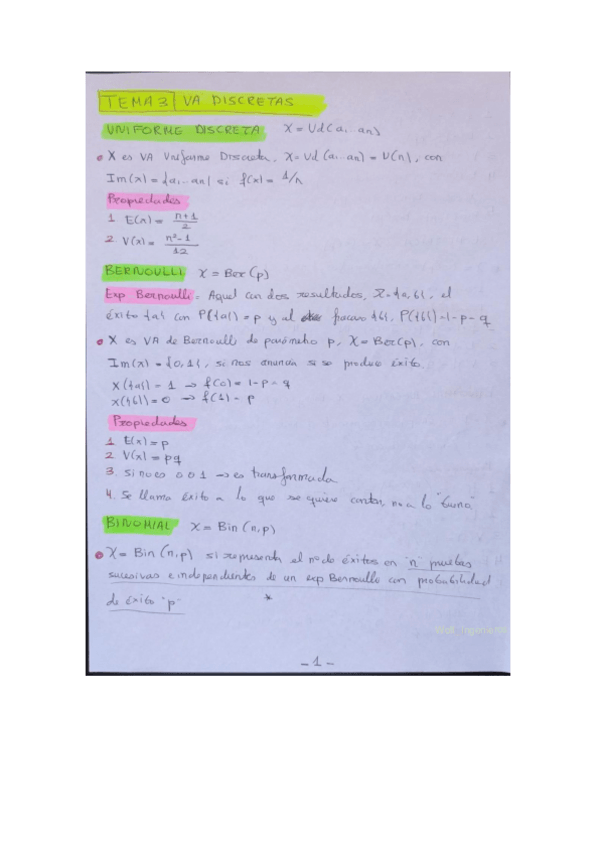 TEMA 3 VA DISCRETAS
UNIFORME DISCRETA X = Ud(a,...an)
X es VA Uniforme Discreta, X=Ud (a,...an) = U(n), con
Im(x) = {a,...an} si f(x) = 1/n
Propiedades
1. E(n) = n+1/2
2. V(x) = n²-1/12
BERNOULLI X = Ber (p)
Exp Bernoulli = Aquel con dos resultados, = {a,b}, el
éxito {a} con P({a}) = p y al fracaso {b}, P({b}) = 1-p = q
X es VA de Bernoulli de parámetro p, X = Ber(p), con
Im(x) = {0,1}, si nos anuncia si se produce éxito.
X({a}) = 1 → f(0) = 1-p = q
X({b}) = 0 → f(1) = p
Propiedades
1 E(x) = p
2 V(x) = pq
3. Si no es 0 o 1 → es transformada
4. Se llama éxito a lo que se quiere contar, no a lo "bueno".
BINOMIAL X = Bin (n,p)
X = Bin (n,p) si representa el nº de éxitos en "n" pruebas
sucesivas e independientes de un exp Bernoulli con probabilidad
de éxito "p"
*
- 1 -